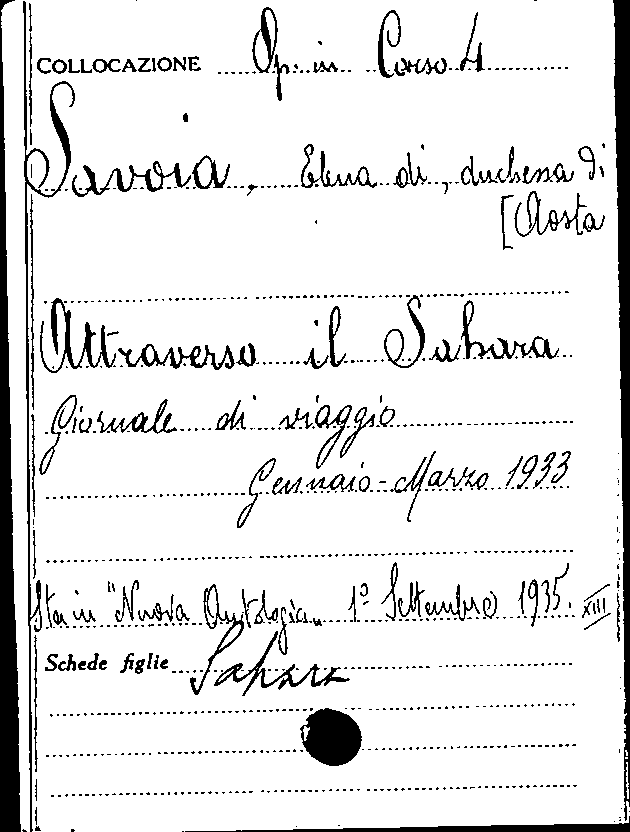 COLLOCAZIONE Op. in Corso 4
Savoia, Elena di, duchessa di
[Aosta
Attraverso il Sahara
Giornale di viaggio
Gennaio-Marzo 1933
Sta in "Nuova Antologia„ 1º Settembre 1935. XIII
Schede figlie Sahara